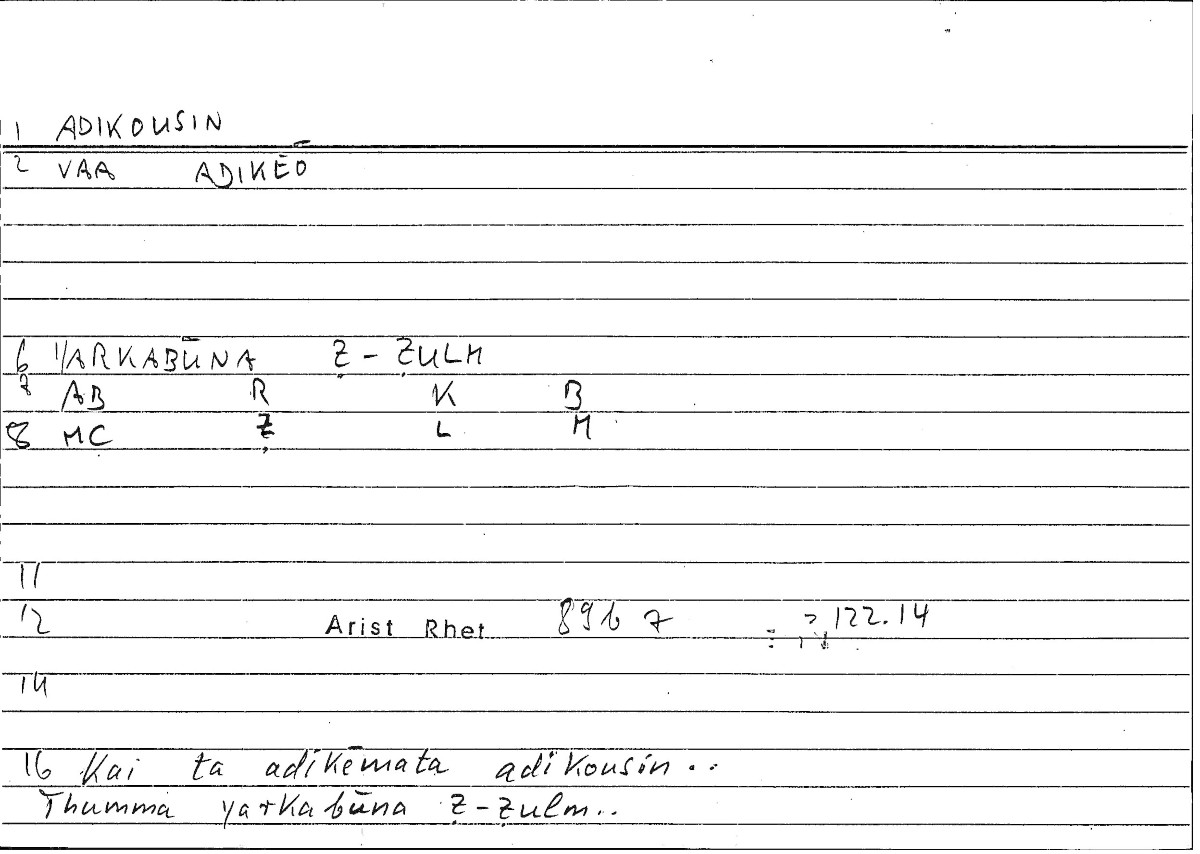 1 ADIKOUSIN
2 VAA ADIKĒŌ
6 YARKABŪNA Ẓ-ẒULM
7 AB R K B
8 MC Ẓ L M
11
12 Arist Rhet 89b 7 122.14
14
16 Kai ta adikēmata adikousin..
Thumma yarkabūna Ẓ-ẓulm..